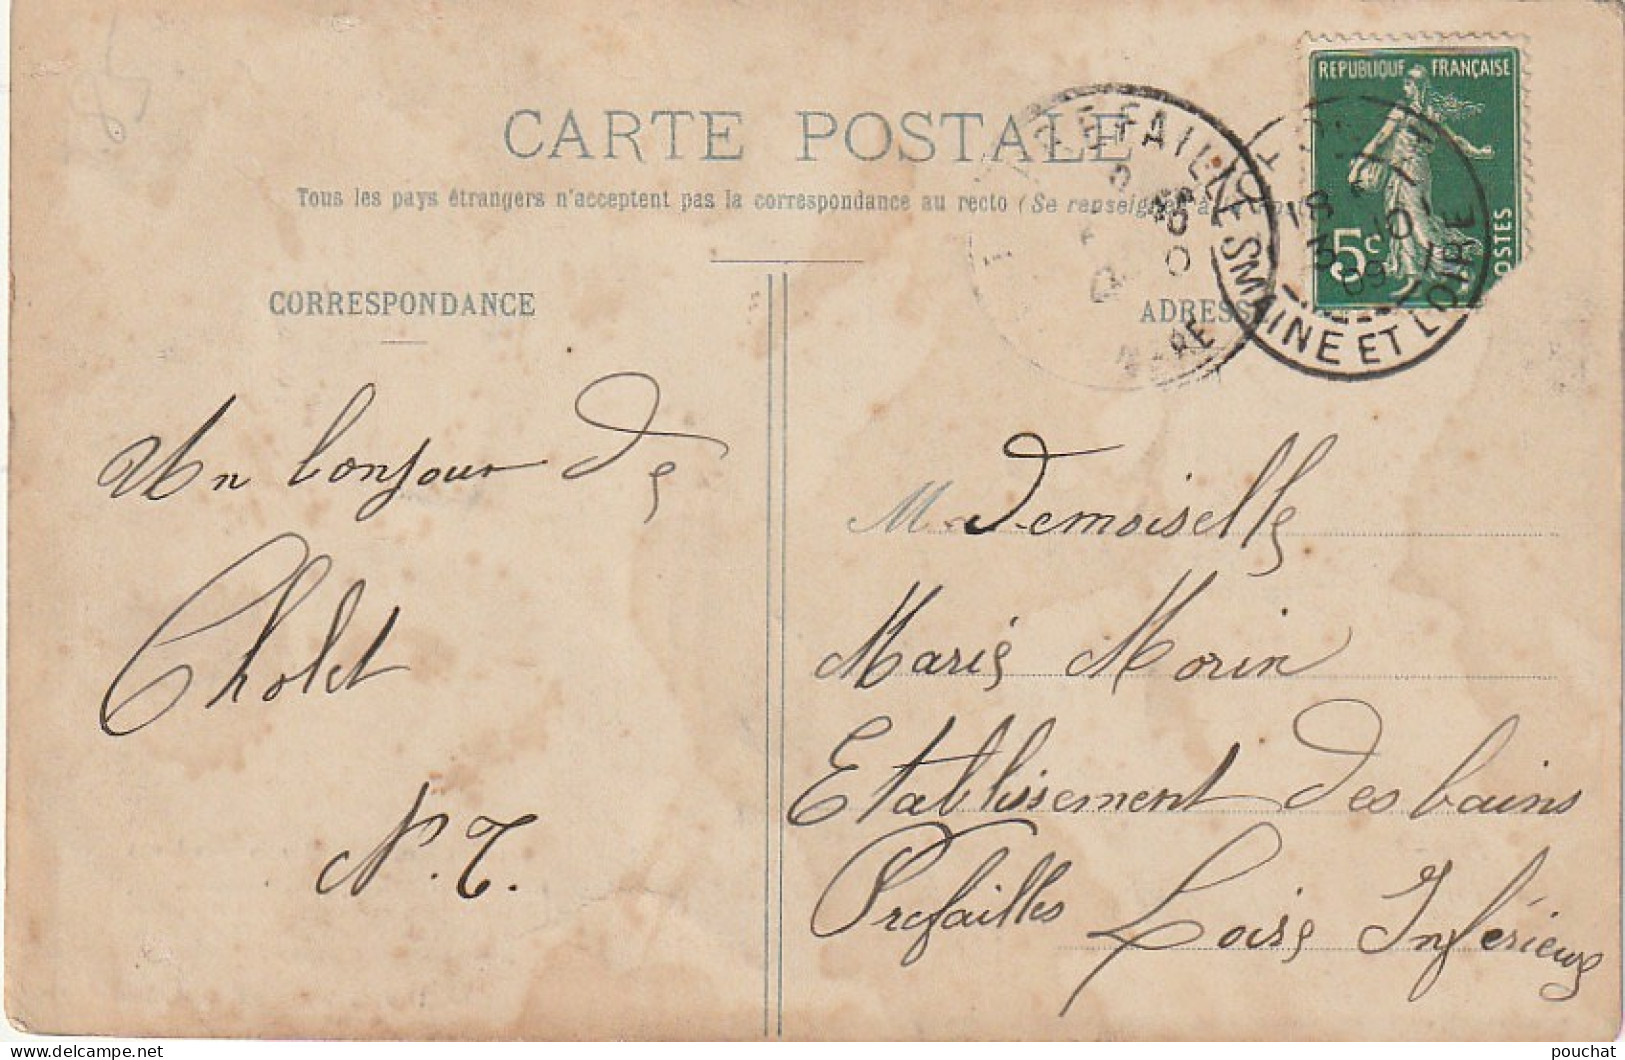 CARTE POSTALE
Tous les pays étrangers n'acceptent pas la correspondance au recto (Se renseigner à la
CORRESPONDANCE
ADRESSE
REPUBLIQUE FRANÇAISE
5c
POSTES
PREFAILLES
CHOLET
MAINE ET LOIRE
18
3 10
09
Un bonjour de
Cholet
N. T.
M Demoiselle
Marie Morin
Etablissement des bains
Prefailles Loire Inférieure
pouchat